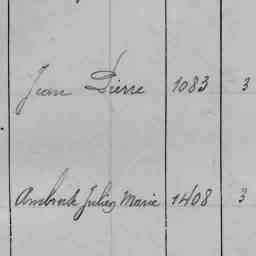 Jean Pierre 1083 3
Ambroise Jules Marie 1408 3